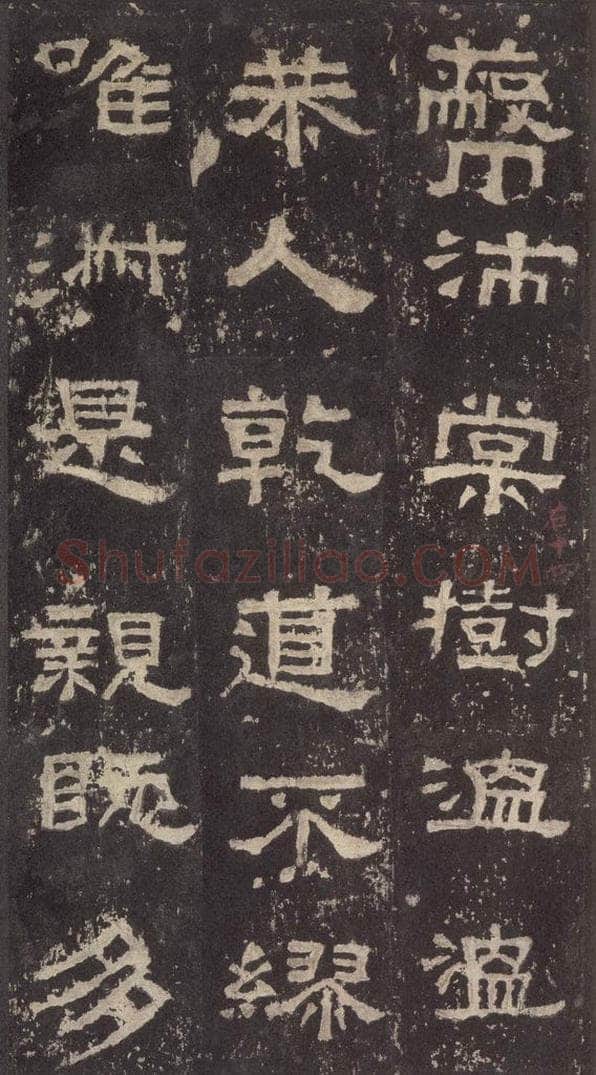 蔽沛棠樹温温
恭人乾道不繆
唯淑是親既多
Shufaziliao.COM